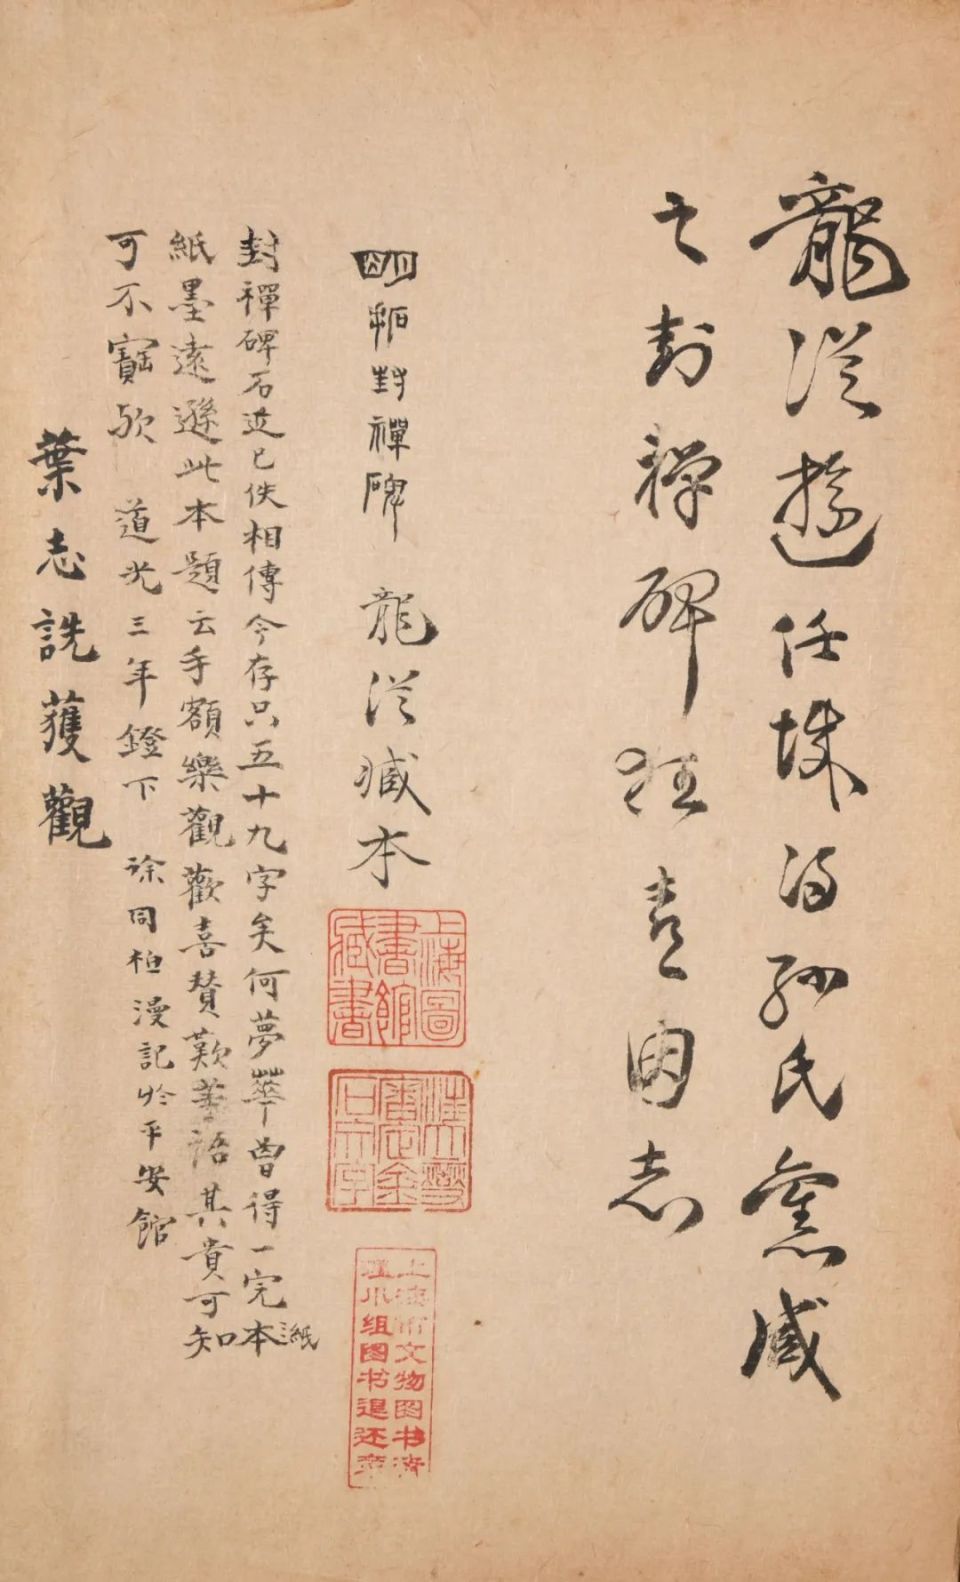 龍遊任城得孫氏舊臧
之封禪碑狂喜因志
明拓封禪碑 龍臧本
上海圖書館臧書
審定金石文字
上海市文物图书清
理小组图书退还章
封禪碑石並已佚相傳今存只五十九字矣何夢華曾得一完本紙
紙墨遠遜此本題云手額樂觀歡喜贊歎華語其貴可知
可不寶歟 道光三年鐙下 徐同柏漫記於平安館
葉志詵獲觀